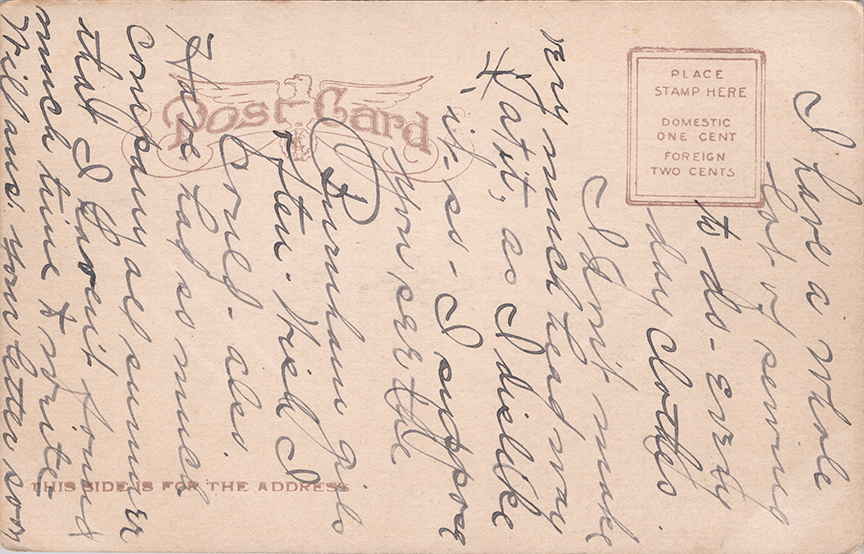 Post Card
PLACE
STAMP HERE
DOMESTIC
ONE CENT
FOREIGN
TWO CENTS
THIS SIDE IS FOR THE ADDRESS
I have a whole
lot of sewing
to do - every
day clothes.
I don't make
very much head way
at it, as I dislike
it so - I suppose
you see the
Burnham girls
often. Wish I
could - also.
Have had so much
company all summer
that I haven't found
much time to write.
Will ans. your letter soon